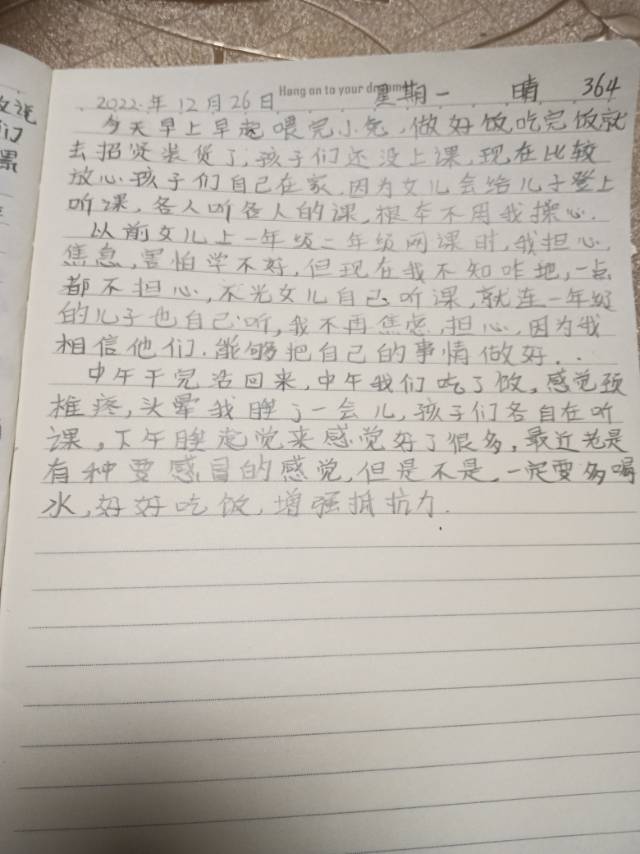 Hang on to your dreams
2022年12月26日 星期一 晴 364
今天早上早起喂完小兔,做好饭,吃完饭就
去招贤装货了,孩子们还没上课,现在比较
放心孩子们自己在家,因为女儿会给儿子登上
听课,各人听各人的课,根本不用我操心.
以前女儿上一年级二年级网课时,我担心,
焦急,害怕学不好,但现在我不知咋地,一点
都不担心,不光女儿自己听课,就连一年级
的儿子也自己听,我不再焦虑,担心,因为我
相信他们.能够把自己的事情做好..
中午干完活回来,中午我们吃了饭,感觉颈
椎疼,头晕我睡了一会儿,孩子们各自在听
课,下午睡起觉来感觉好了很多,最近老是
有种要感冒的感觉,但是不是,一定要多喝
水,好好吃饭,增强抵抗力.